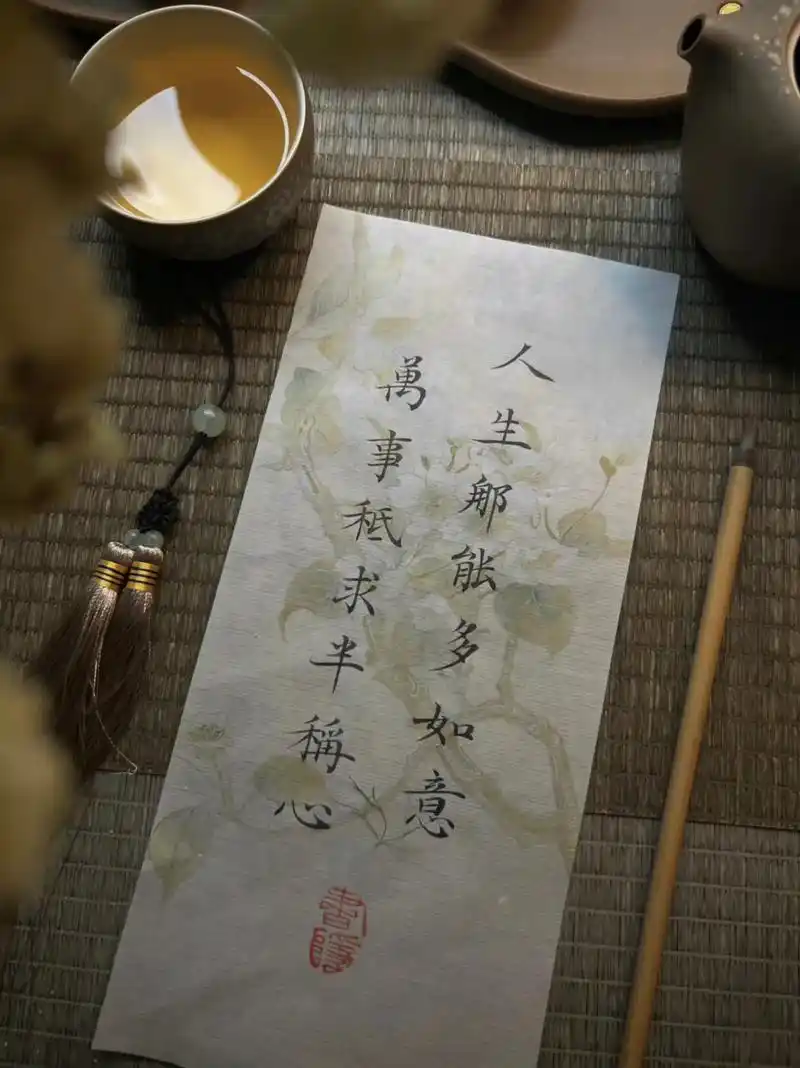 人生那能多如意
萬事秪求半稱心
書隱